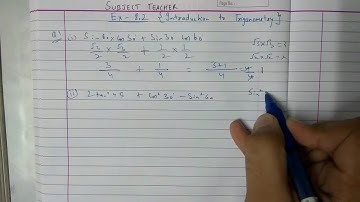 SUBJECT TEACHER
Ex-8.2 {Introduction to Trigonometry}
Q.1 (i) Sin 60 Cos 30 + Sin 30 Cos 60
√3/2 × √3/2 + 1/2 × 1/2 √3×√3 = 3
3/4 + 1/4 = 3+1/4 = 4/4 1 √x×√x = x
(ii) 2 tan² 45 + Cos² 30 - Sin² 60 Sin²